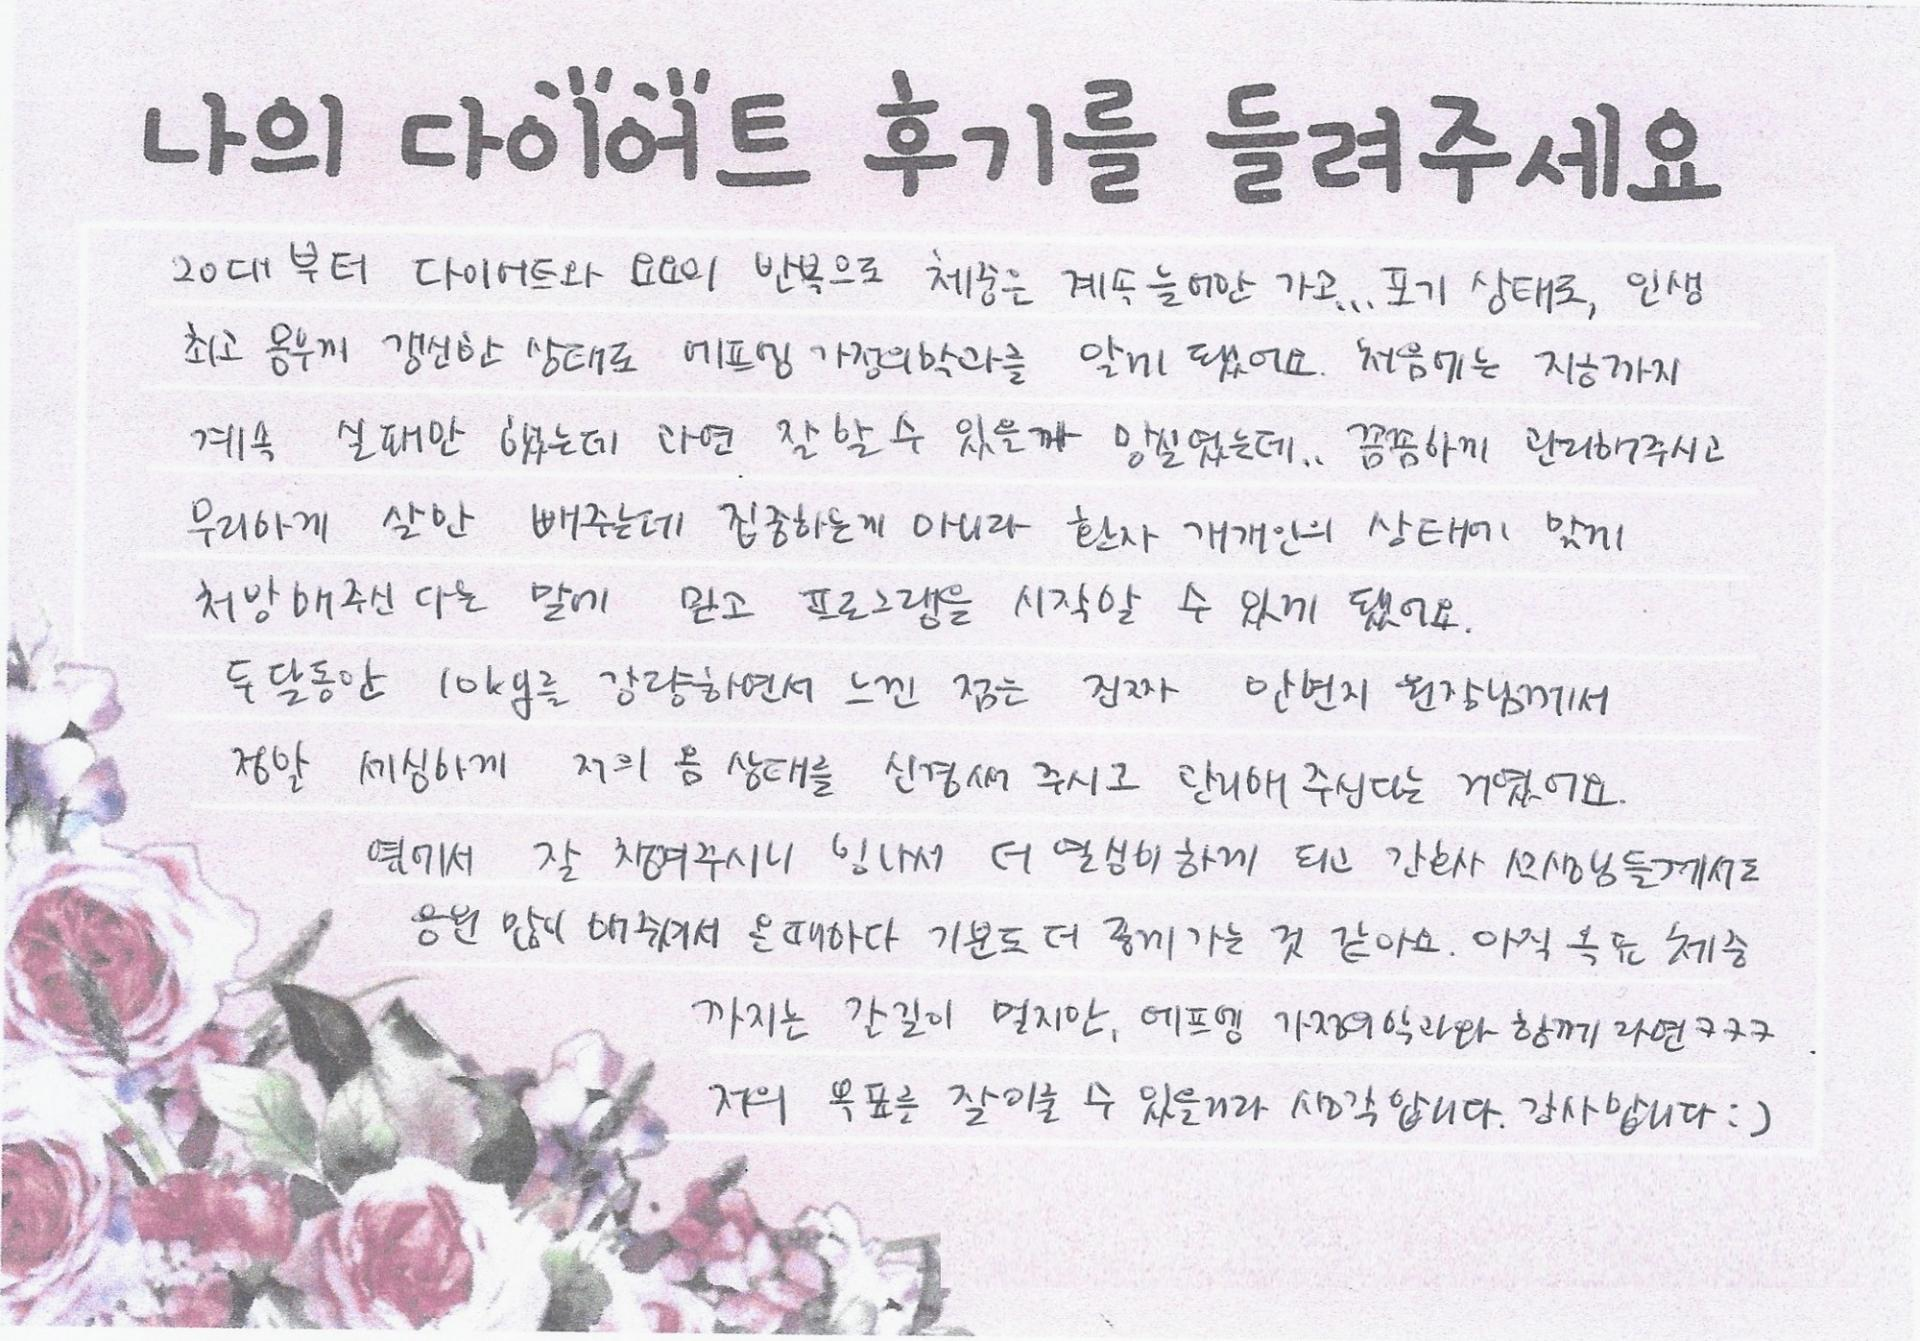 나의 다이어트 후기를 들려주세요
20대 부터 다이어트와 요요의 반복으로 체중은 계속 늘어만 가고... 포기 상태로, 인생
최고 몸무게 갱신한 상태로 에프엠 가정의학과를 알게 됐어요. 처음에는 지금까지
계속 실패만 했는데 과연 잘 할 수 있을까 망설였는데.. 꼼꼼하게 관리해주시고
무리하게 살만 빼주는데 집중하는게 아니라 환자 개개인의 상태에 맞게
처방해주신다는 말에 믿고 프로그램을 시작할 수 있게 됐어요.
두달동안 10kg를 감량하면서 느낀 점은 진짜 안변지 원장님께서
정말 세심하게 저의 몸 상태를 신경써 주시고 관리해 주신다는 거였어요.
옆에서 잘 챙겨주시니 힘나서 더 열심히 하게 되고 간호사 선생님들께서도
응원 많이 해주셔서 온때하다 기분도 더 좋게 가는 것 같아요. 아직 목표 체중
까지는 갈길이 멀지만, 에프엠 가정의학과와 함께 라면ㅋㅋㅋ
저의 목표를 잘 이룰 수 있을거라 생각합니다. 감사합니다 :)